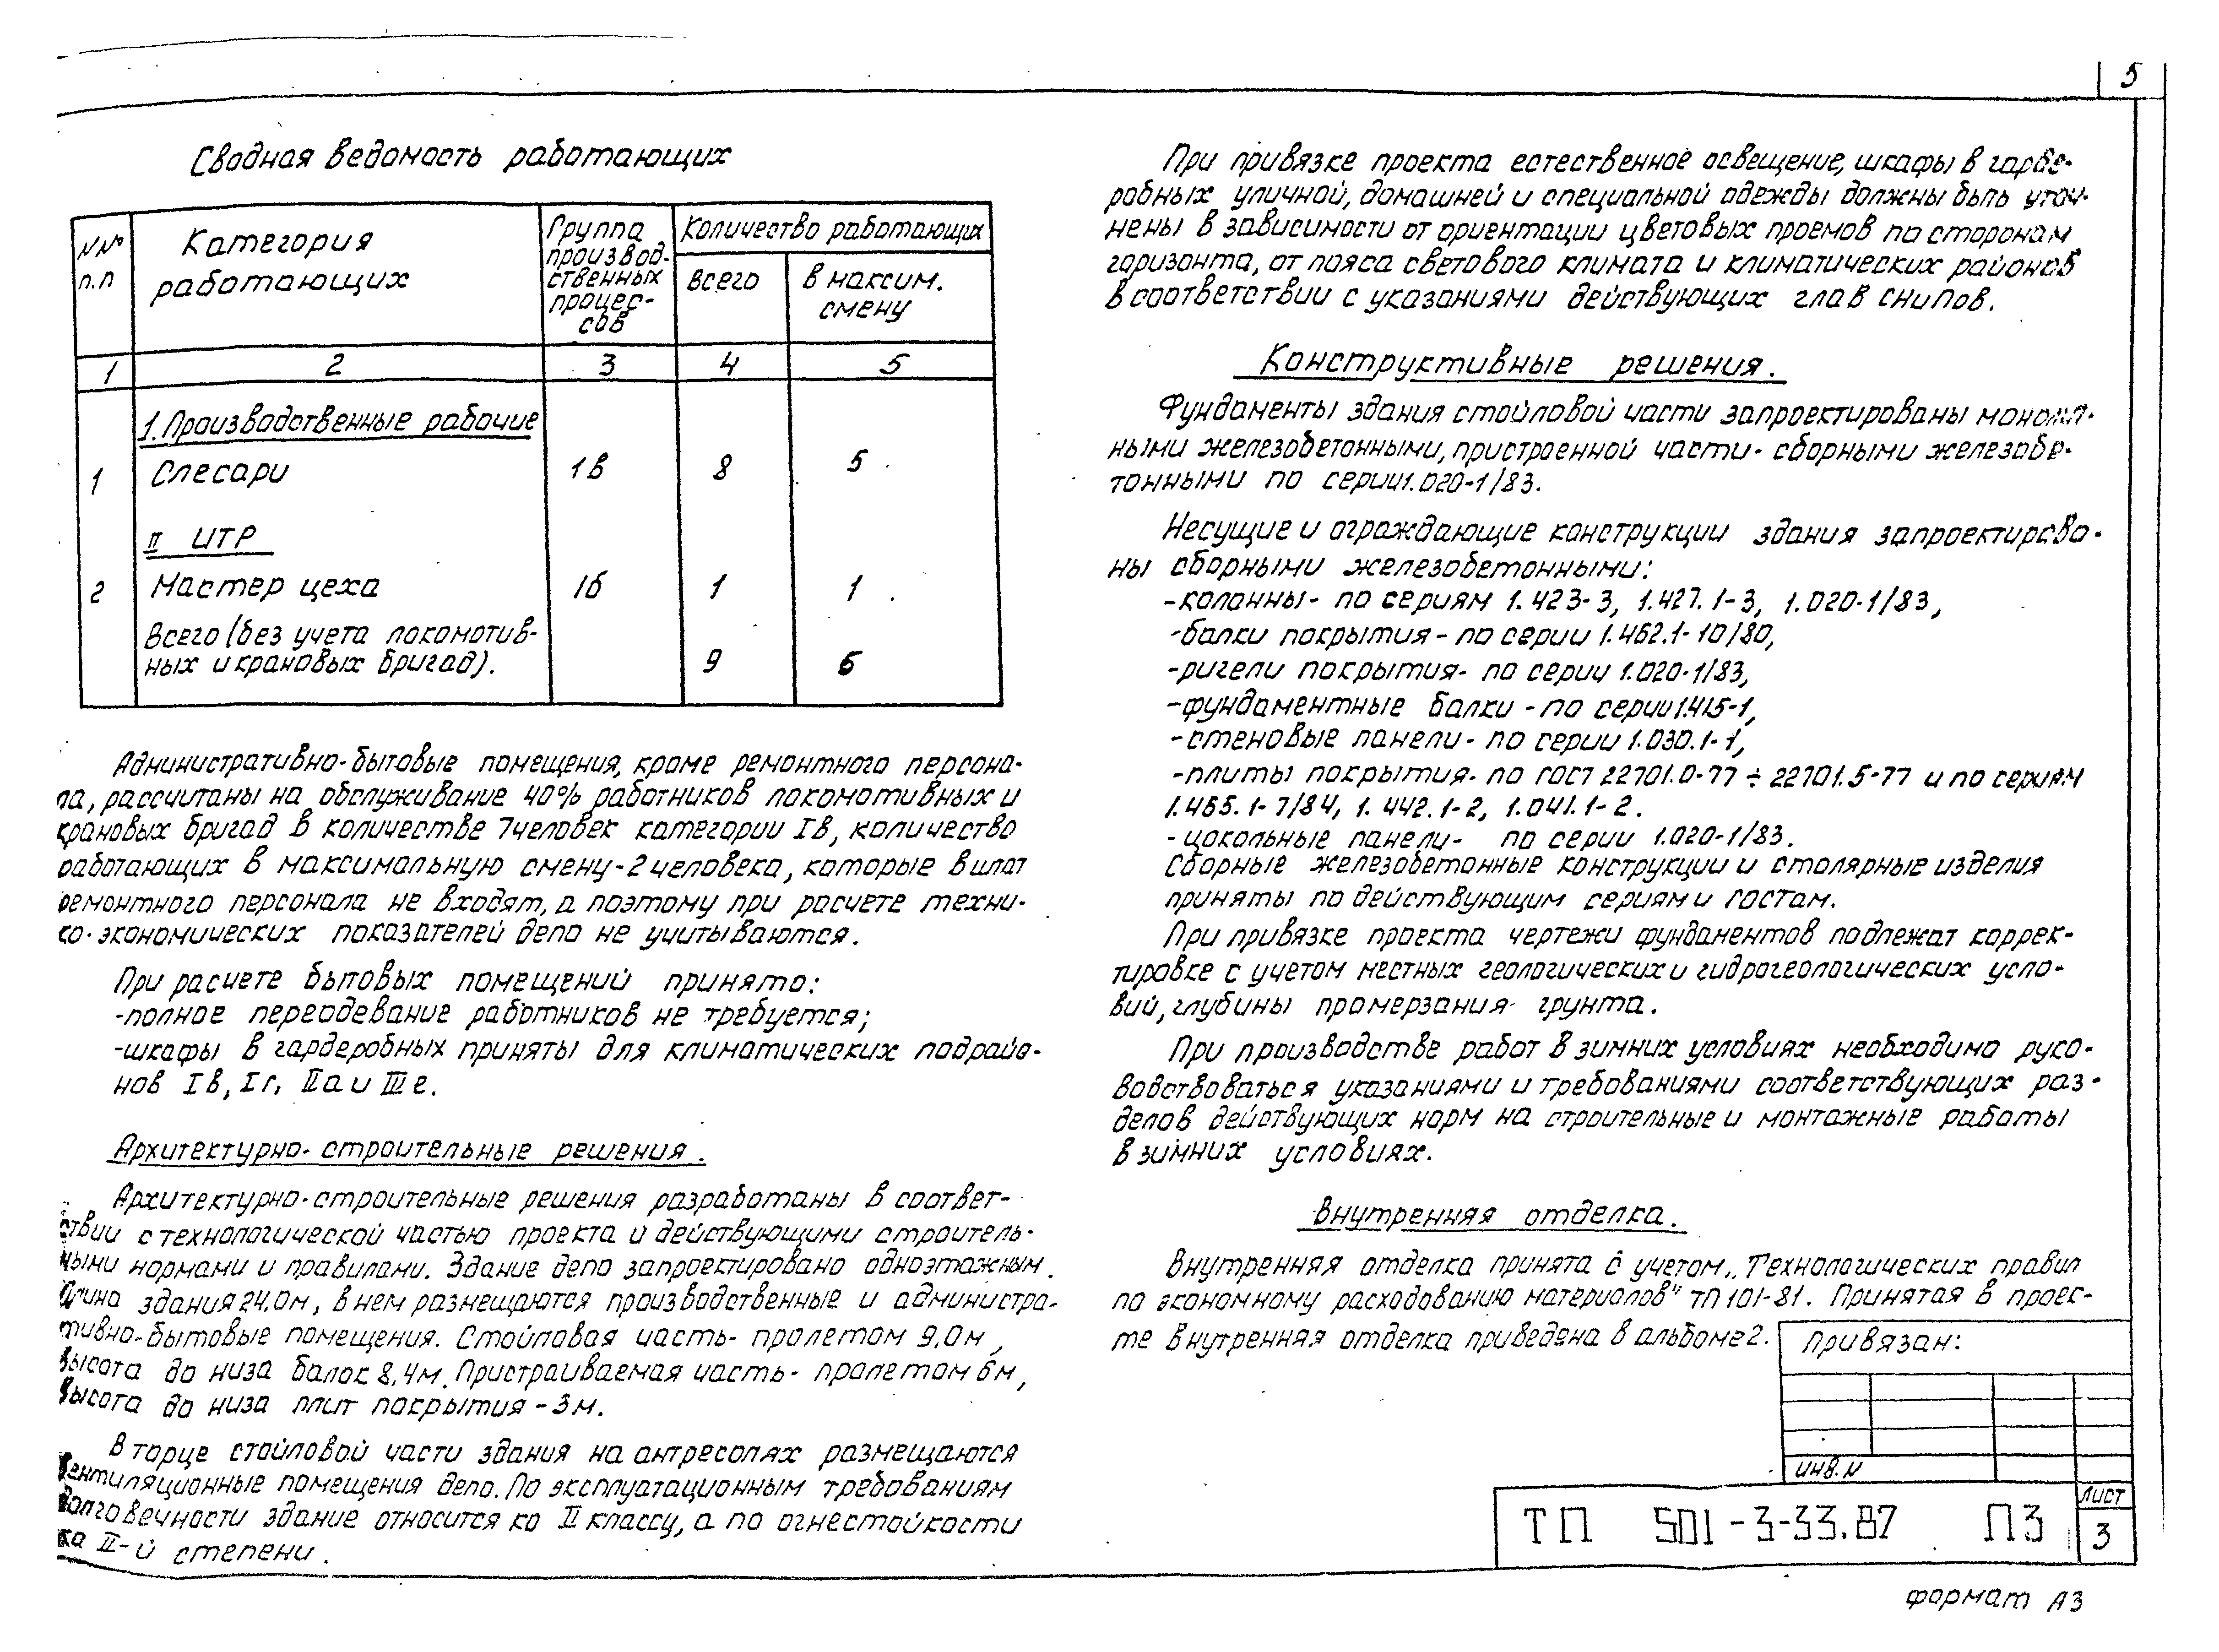 5
Сводная ведомость работающих
NN° п.п
Категория работающих
Группа производ-ственных процес-сов
Количество работающих
всего
в максим. смену
1 2 3 4 5
1. Производственные рабочие
1 Слесари 1в 8 5
II ИТР
2 Мастер цеха 1б 1 1
Всего (без учета локомотив-
ных и крановых бригад). 9 6
Административно-бытовые помещения, кроме ремонтного персона-
ла, рассчитаны на обслуживание 40% работников локомотивных и
крановых бригад в количестве 7 человек категории Iв, количество
работающих в максимальную смену-2 человека, которые в штат
ремонтного персонала не входят, а поэтому при расчете техни-
ко-экономических показателей депо не учитываются.
При расчете бытовых помещений принято:
-полное переодевание работников не требуется;
-шкафы в гардеробных приняты для климатических подрайо-
нов Iв, Iг, IIа и IIIе.
Архитектурно-строительные решения.
Архитектурно-строительные решения разработаны в соответ-
ствии с технологической частью проекта и действующими строитель-
ными нормами и правилами. Здание депо запроектировано одноэтажным.
Длина здания 24,0м, в нем размещаются производственные и администра-
тивно-бытовые помещения. Стойловая часть- пролетом 9,0м,
высота до низа балок 8,4м. Пристраиваемая часть- пролетом 6м,
высота до низа плит покрытия-3м.
В торце стойловой части здания на антресолях размещаются
вентиляционные помещения депо. По эксплуатационным требованиям
долговечности здание относится ко II классу, а по огнестойкости
ко II-й степени.
При привязке проекта естественное освещение, шкафы в гарде-
робных уличной, домашней и специальной одежды должны быть уточ-
нены в зависимости от ориентации цветовых проемов по сторонам
горизонта, от пояса светового климата и климатических районов
в соответствии с указаниями действующих глав СНиПов.
Конструктивные решения.
Фундаменты здания стойловой части запроектированы монолит-
ными железобетонными, пристроенной части- сборными железобе-
тонными по серии 1.020-1/83.
Несущие и ограждающие конструкции здания запроектирова-
ны сборными железобетонными:
-колонны- по сериям 1.423-3, 1.427.1-3, 1.020-1/83,
-балки покрытия-по серии 1.462.1-10/80,
-ригели покрытия- по серии 1.020-1/83,
-фундаментные балки-по серии 1.415-1,
-стеновые панели- по серии 1.030.1-1,
-плиты покрытия- по ГОСТ 22701.0-77 ÷ 22701.5-77 и по сериям
1.465.1-7/84, 1.442.1-2, 1.041.1-2.
-цокольные панели- по серии 1.020-1/83.
Сборные железобетонные конструкции и столярные изделия
приняты по действующим сериям и ГОСТам.
При привязке проекта чертежи фундаментов подлежат коррек-
тировке с учетом местных геологических и гидрогеологических усло-
вий, глубины промерзания грунта.
При производстве работ в зимних условиях необходимо руко-
водствоваться указаниями и требованиями соответствующих раз-
делов действующих норм на строительные и монтажные работы
в зимних условиях.
Внутренняя отделка.
Внутренняя отделка принята с учетом „Технологических правил
по экономному расходованию материалов" ТП 101-81. Принятая в проек-
те внутренняя отделка приведена в альбоме 2.
Привязан:
инв. N
ТП 501-3-33.87 ПЗ
Лист
3
Формат А3